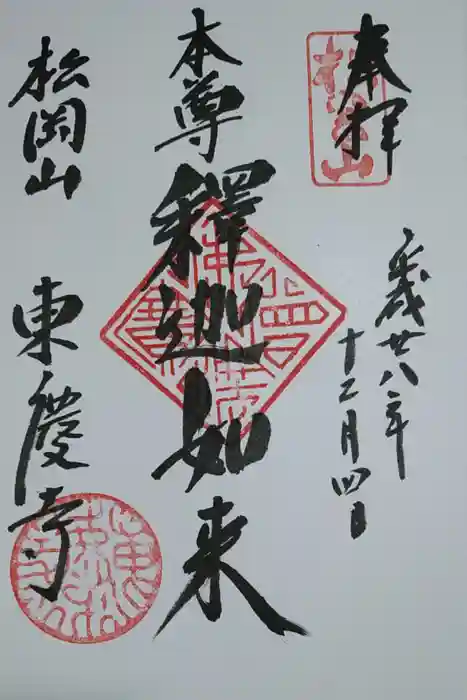 奉拝
平成廿八年
十二月四日
本尊
釋迦如来
松岡山
東慶寺